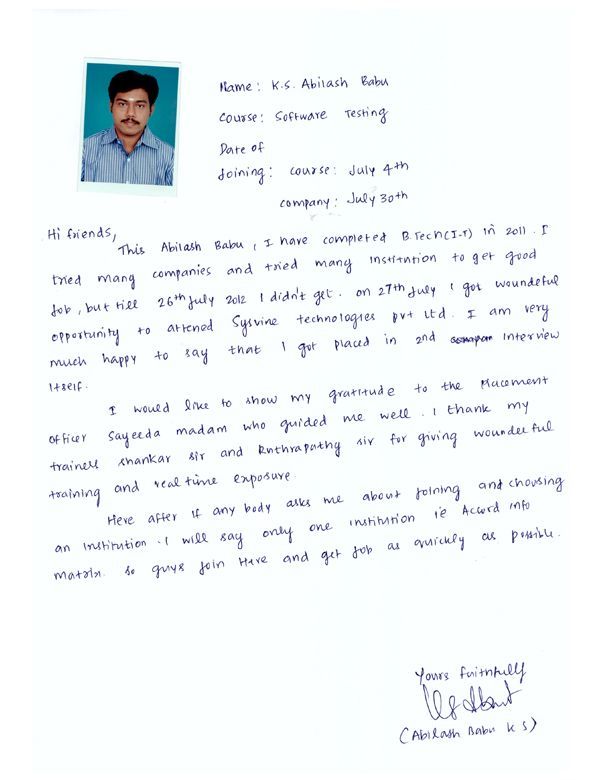 Name: K.S. Abilash Babu
Course: Software Testing
Date of
Joining: course: July 4th
company: July 30th
Hi friends,
This Abilash Babu, I have completed B.Tech(I.T) in 2011. I
tried many companies and tried many Institution to get good
Job, but till 26th July 2012 I didn't get. on 27th July I got woundeful
opportunity to attened Sysvine technologies pvt Ltd. I am very
much happy to say that I got placed in 2nd Interview
Itself.
I would like to show my gratitude to the placement
officer Sayeeda madam who guided me well. I thank my
trainers shankar sir and Ruthrapathy sir for giving wounderful
training and real time exposure.
Here after if any body asks me about Joining and choosing
an Institution. I will say only one institution i.e Accord info
matrix. so guys Join Here and get Job as quickly as possible.
Yours faithfully
(Abilash Babu K S)